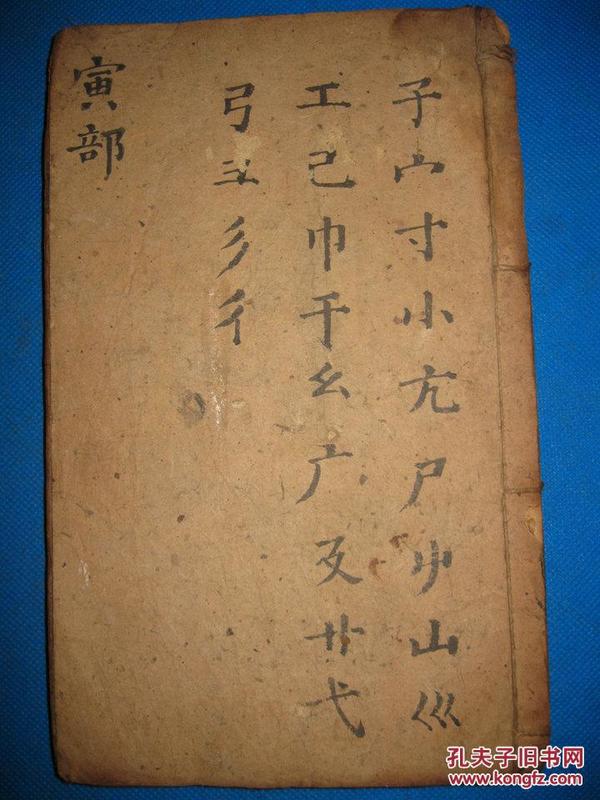 子宀寸小亢尸屮山巛
工己巾干幺广廴廾弋
弓彑彡彳
寅部
孔夫子旧书网
www.kongfz.com